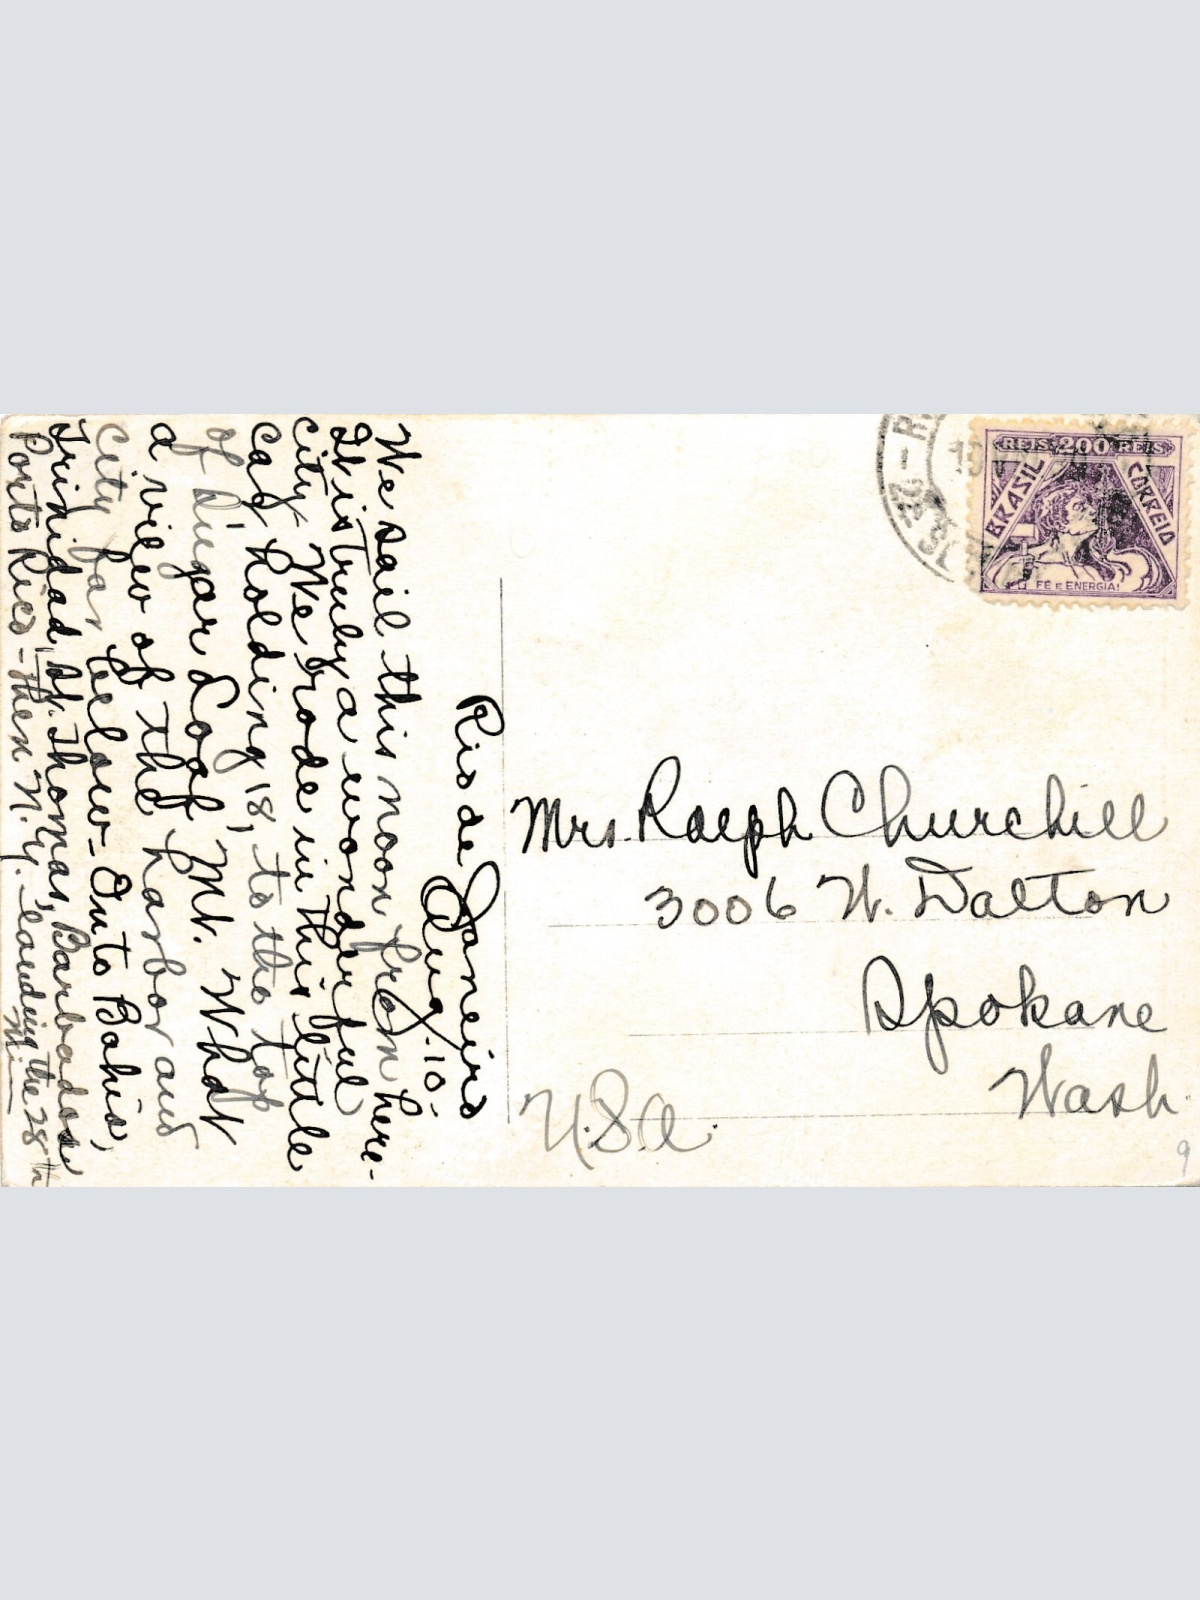 Rio de Janeiro
Aug. 10-
We sail this noon from here-
It is truly a wonderful
city. We rode in this little
car, holding 18, to the top
of Sugar Loaf Mt. What
a view of the harbor and
city far below - On to Bahia,
Trinidad, St. Thomas, Barbados
Porto Rico - then N.Y. landing the 28th
M.
REIS 200 REIS
BRASIL CORREIO
FÉ E ENERGIA!
Mrs. Ralph Churchill
3006 W. Dalton
Spokane
Wash.
U.S.A.
9